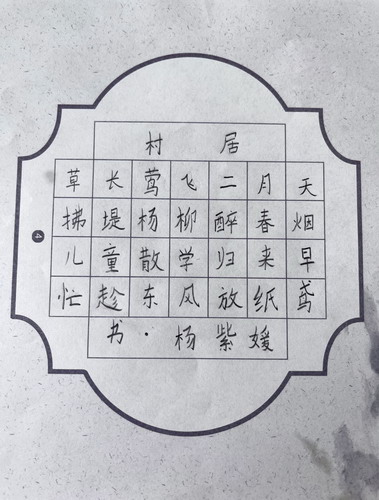 村居
草长莺飞二月天
拂堤杨柳醉春烟
儿童散学归来早
忙趁东风放纸鸢
书·杨紫媛
4